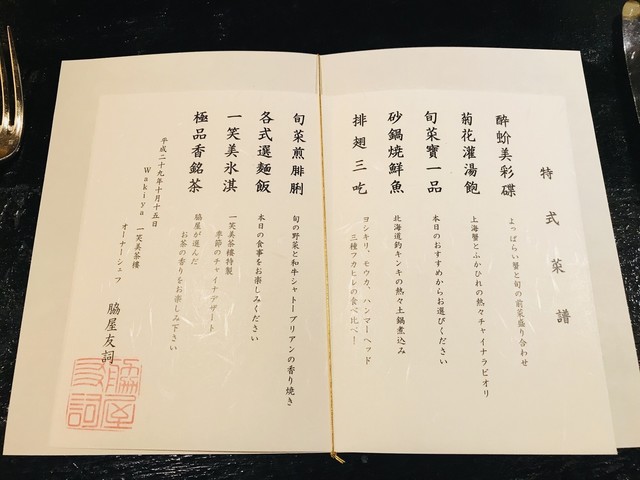 特式菜譜
酔蚧美彩碟
よっぱらい蟹と旬の前菜盛り合わせ
菊花灌湯飽
上海蟹とふかひれの熱々チャイナラビオリ
旬菜寶一品
本日のおすすめからお選びください
砂鍋焼鮮魚
北海道釣キンキの熱々土鍋煮込み
排翅三吃
ヨシキリ、モウカ、ハンマーヘッド
三種フカヒレの食べ比べ！
旬菜煎腓脷
旬の野菜と和牛シャトーブリアンの香り焼き
各式選麵飯
本日の食事をお楽しみください
一笑美氷淇
一笑美茶樓特製
季節のチャイナデザート
極品香銘茶
脇屋が選んだ
お茶の香りをお楽しみ下さい
平成二十九年十月十五日
Wakiya 一笑美茶樓
オーナーシェフ
脇屋友詞
脇屋友詞